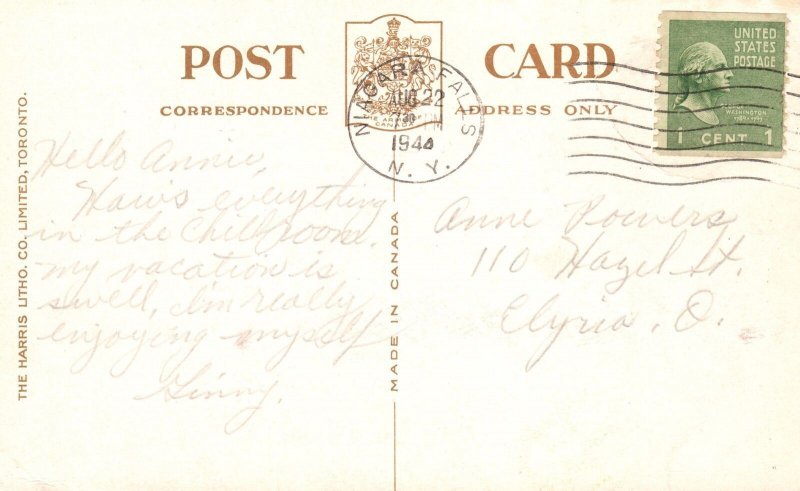 POST CARD
CORRESPONDENCE ADDRESS ONLY
THE ARMS OF
CANADA
NIAGARA FALLS
AUG 22
730 PM
1944
N. Y.
UNITED
STATES
POSTAGE
WASHINGTON
1789-1797
1 CENT 1
Hello Annie,
How's everything
in the Chillroom.
my vacation is
swell, I'm really
enjoying myself
Ginny.
Anne Powers
110 Hazel St.
Elyria, O.
MADE IN CANADA
THE HARRIS LITHO. CO. LIMITED, TORONTO.